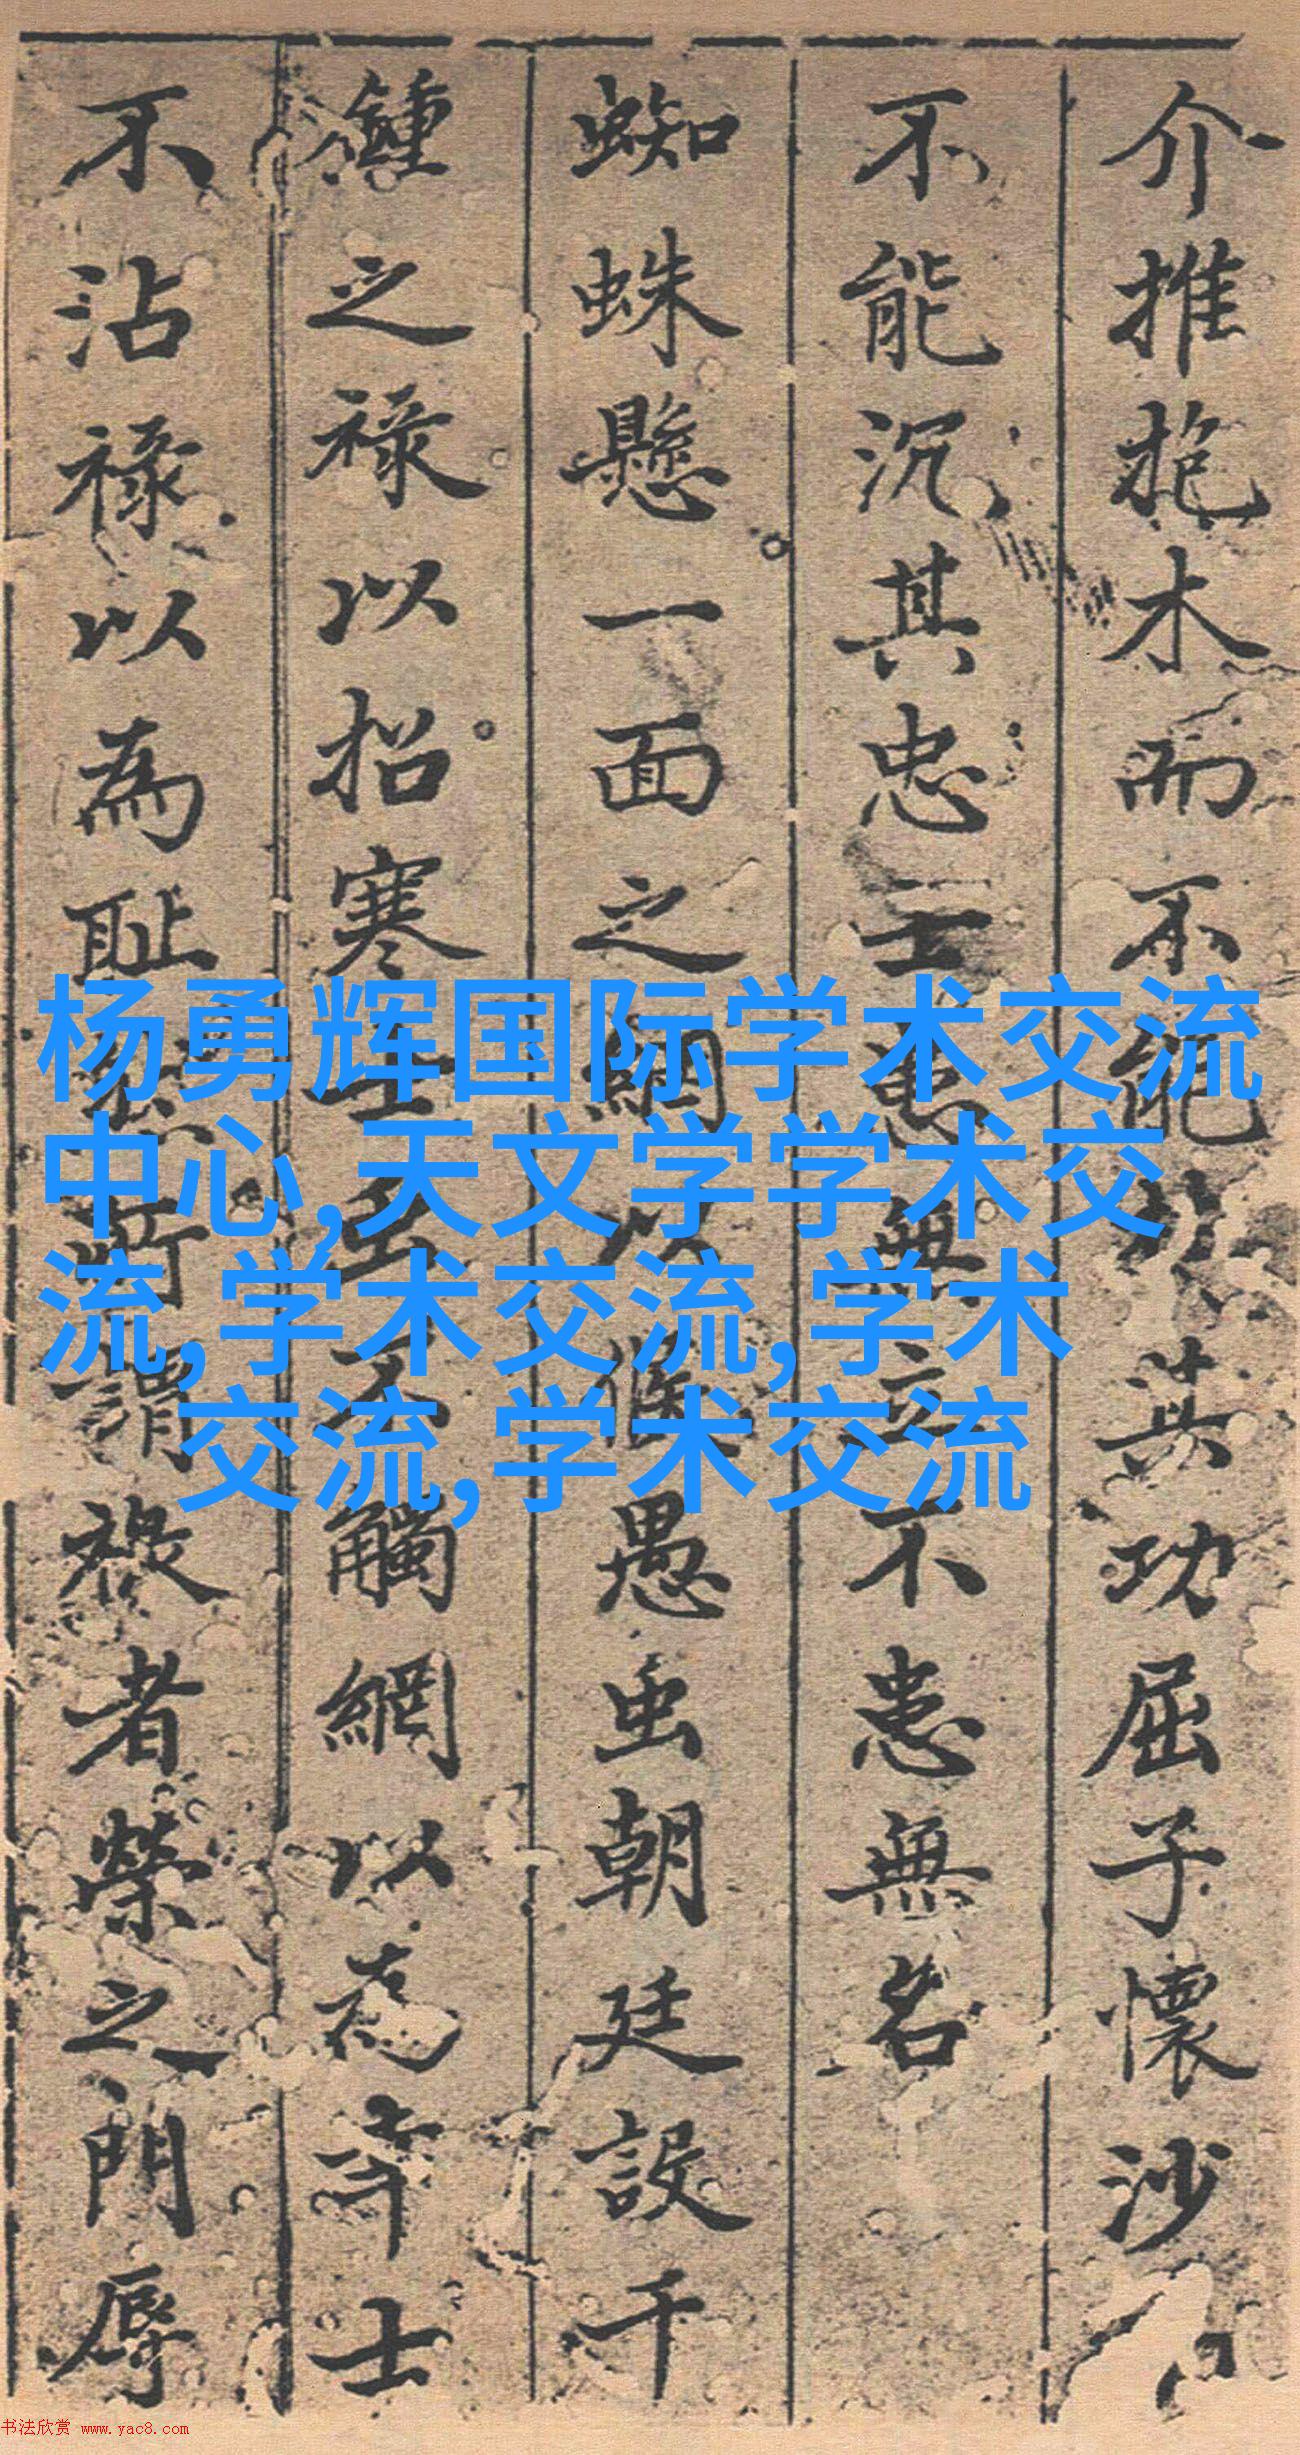 介推抱木而不能共功屈子懷沙
不能沉其忠士患無立不患無名
蜘蛛懸一面之網以愚虫朝廷設千
鍾之祿以招寒士虫不觸網以為宰士
不沾祿以為耻所謂祿者榮之門辱
杨勇辉国际学术交流
中心,天文学学术交
流,学术交流,学术
交流,学术交流
书法欣赏 www.yac8.com